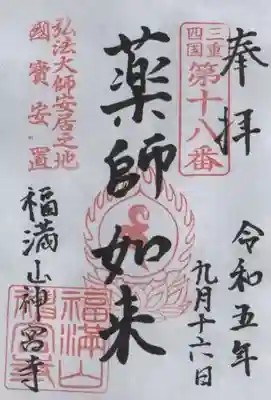 奉拝
三重
四国
第十八番
令和五年
九月十六日
薬師如来
弘法大師安居之地
國寳安置
福満山神宮寺
福満山